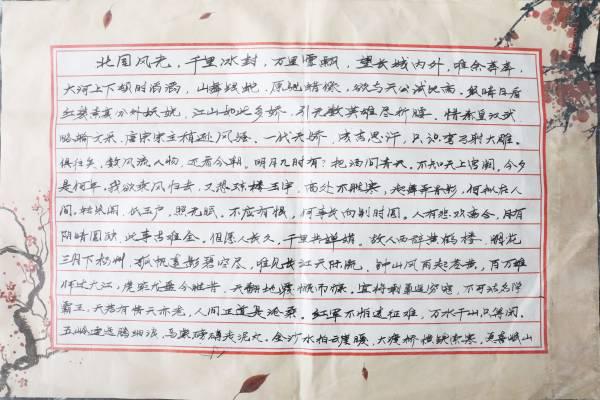 北国风光，千里冰封，万里雪飘，望长城内外，唯余莽莽，
大河上下顿时滔滔，山舞银蛇，原驰蜡像，欲与天公试比高，须晴日看
红装素裹分外妖娆，江山如此多娇，引无数英雄尽折腰，惜秦皇汉武
略输文采，唐宗宋主稍逊风骚。一代天骄，成吉思汗，只识弯弓射大雕。
俱往矣，数风流人物，还看今朝。明月几时有？把酒问青天，不知天上宫阙，今夕
是何年，我欲乘风归去，又恐琼楼玉宇，高处不胜寒，起舞弄清影，何似在人
间，转朱阁，低玉户，照无眠。不应有恨，何事长向别时圆，人有悲欢离合，月有
阴晴圆缺，此事古难全。但愿人长久，千里共婵娟。故人西辞黄鹤楼，烟花
三月下扬州，孤帆远影碧空尽，唯见长江天际流，钟山风雨起苍黄，百万雄
师过大江，虎踞龙盘今胜昔，天翻地覆慨而慷。宜将剩勇追穷寇，不可沽名学
霸王，天若有情天亦老，人间正道是沧桑。红军不怕远征难，万水千山只等闲，
五岭逶迤腾细浪，乌蒙磅礴走泥丸，金沙水拍云崖暖，大渡桥横铁索寒，更喜岷山